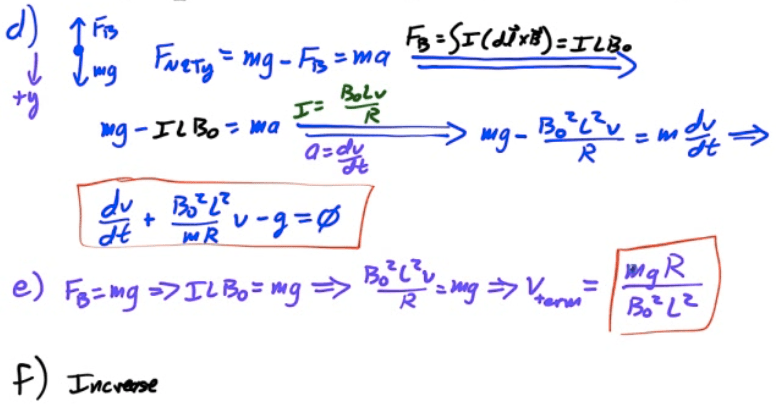 d) F_B mg +y F_NETy = mg - F_B = ma F_B = ∫I(dl⃗×B⃗) = ILB₀
mg - ILB₀ = ma I = B₀Lv/R a = dv/dt mg - B₀²L²v/R = m dv/dt ⇒
dv/dt + B₀²L²/mR v - g = ∅
e) F_B = mg ⇒ ILB₀ = mg ⇒ B₀²L²v/R = mg ⇒ V_term = mgR/B₀²L²
f) Increase